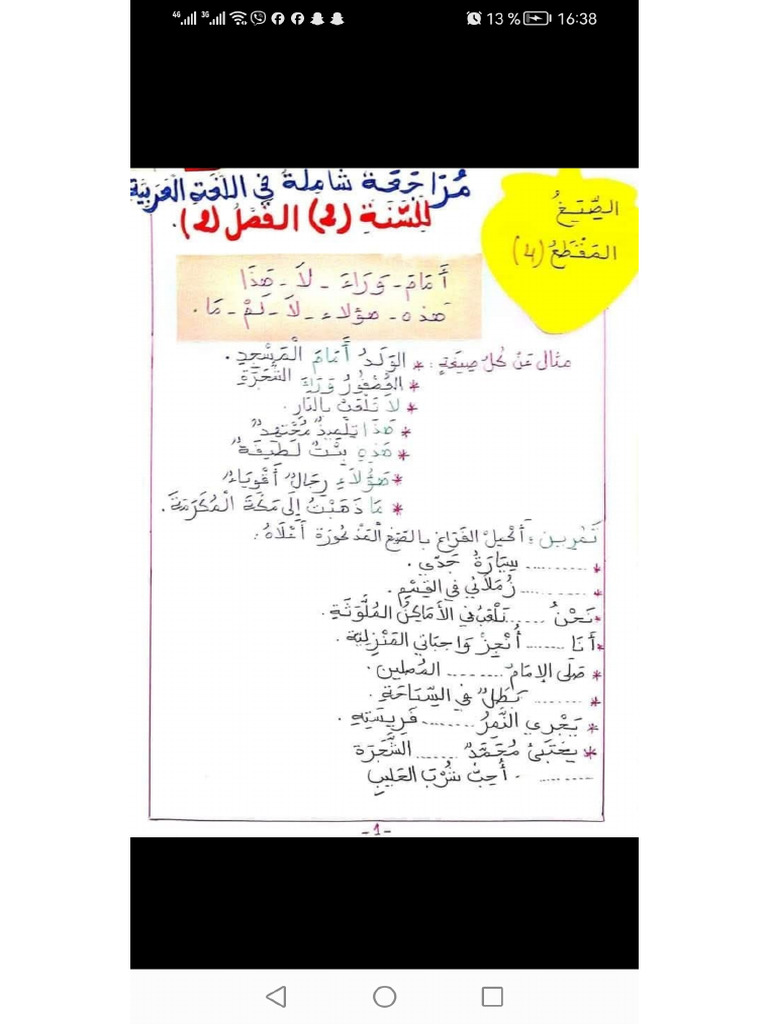 4G 3G 13 % 16:38
مُرَاجَعَة شَامِلَة فِي اللُّغَةِ الْعَرَبِيَّةِ
لِلسَّنَةِ (2) الفَصْلُ (2).
الصِّيَغُ
المَقْطَعُ (4)
أَمَامَ - وَرَاءَ - لاَ - هَذَا
هَذِهِ - هؤلاء - لاَ - لَمْ - مَا.
مثال عَنْ كُلِّ صِيغَةٍ : * الوَلَدُ أَمَامَ الْمَسْجِدِ.
* العُصْفُورُ وَرَاءَ الشَّجَرَةِ
* لاَ تَلْعَبْ بِالنَّارِ.
* هَذَا تِلْمِيذٌ مُجْتَهِدٌ
* هَذِهِ بِنْتٌ لَطِيفَةٌ
* هَؤُلاَءِ رِجَالٌ أَقْوِيَاءُ
* مَا ذَهَبْتُ إِلَى مَكَّةَ الْمُكَرَّمَةَ.
تَمَارِين : أُكْمِلُ الفَرَاغ بِالصِّيَغِ المَذْكُورَةِ أَعْلاَهُ:
* .......... سَيَارَةُ جَدِّي.
* .......... زُمَلاَئِي فِي القِسْمِ.
* نَحْنُ ...... نَلْعَبُ فِي الأَمَاكِنِ المُلَوَّثَةِ.
* أَنَا ....... أُنْجِزْ وَاجِبَاتِي المَنْزِلِيَّة.
* صَلَّى الإِمَامُ ........ المُصَلِّين.
* ........ بَطَلٌ فِي السِّبَاحَةِ.
* يَجْرِي النَّمِرُ ....... فَرِيسَتِهِ.
* يَخْتَبِئُ مُحَمَّدٌ ...... الشَّجَرَةِ
........ أُحِبُّ شُرْبَ الحَلِيبِ.
-1-